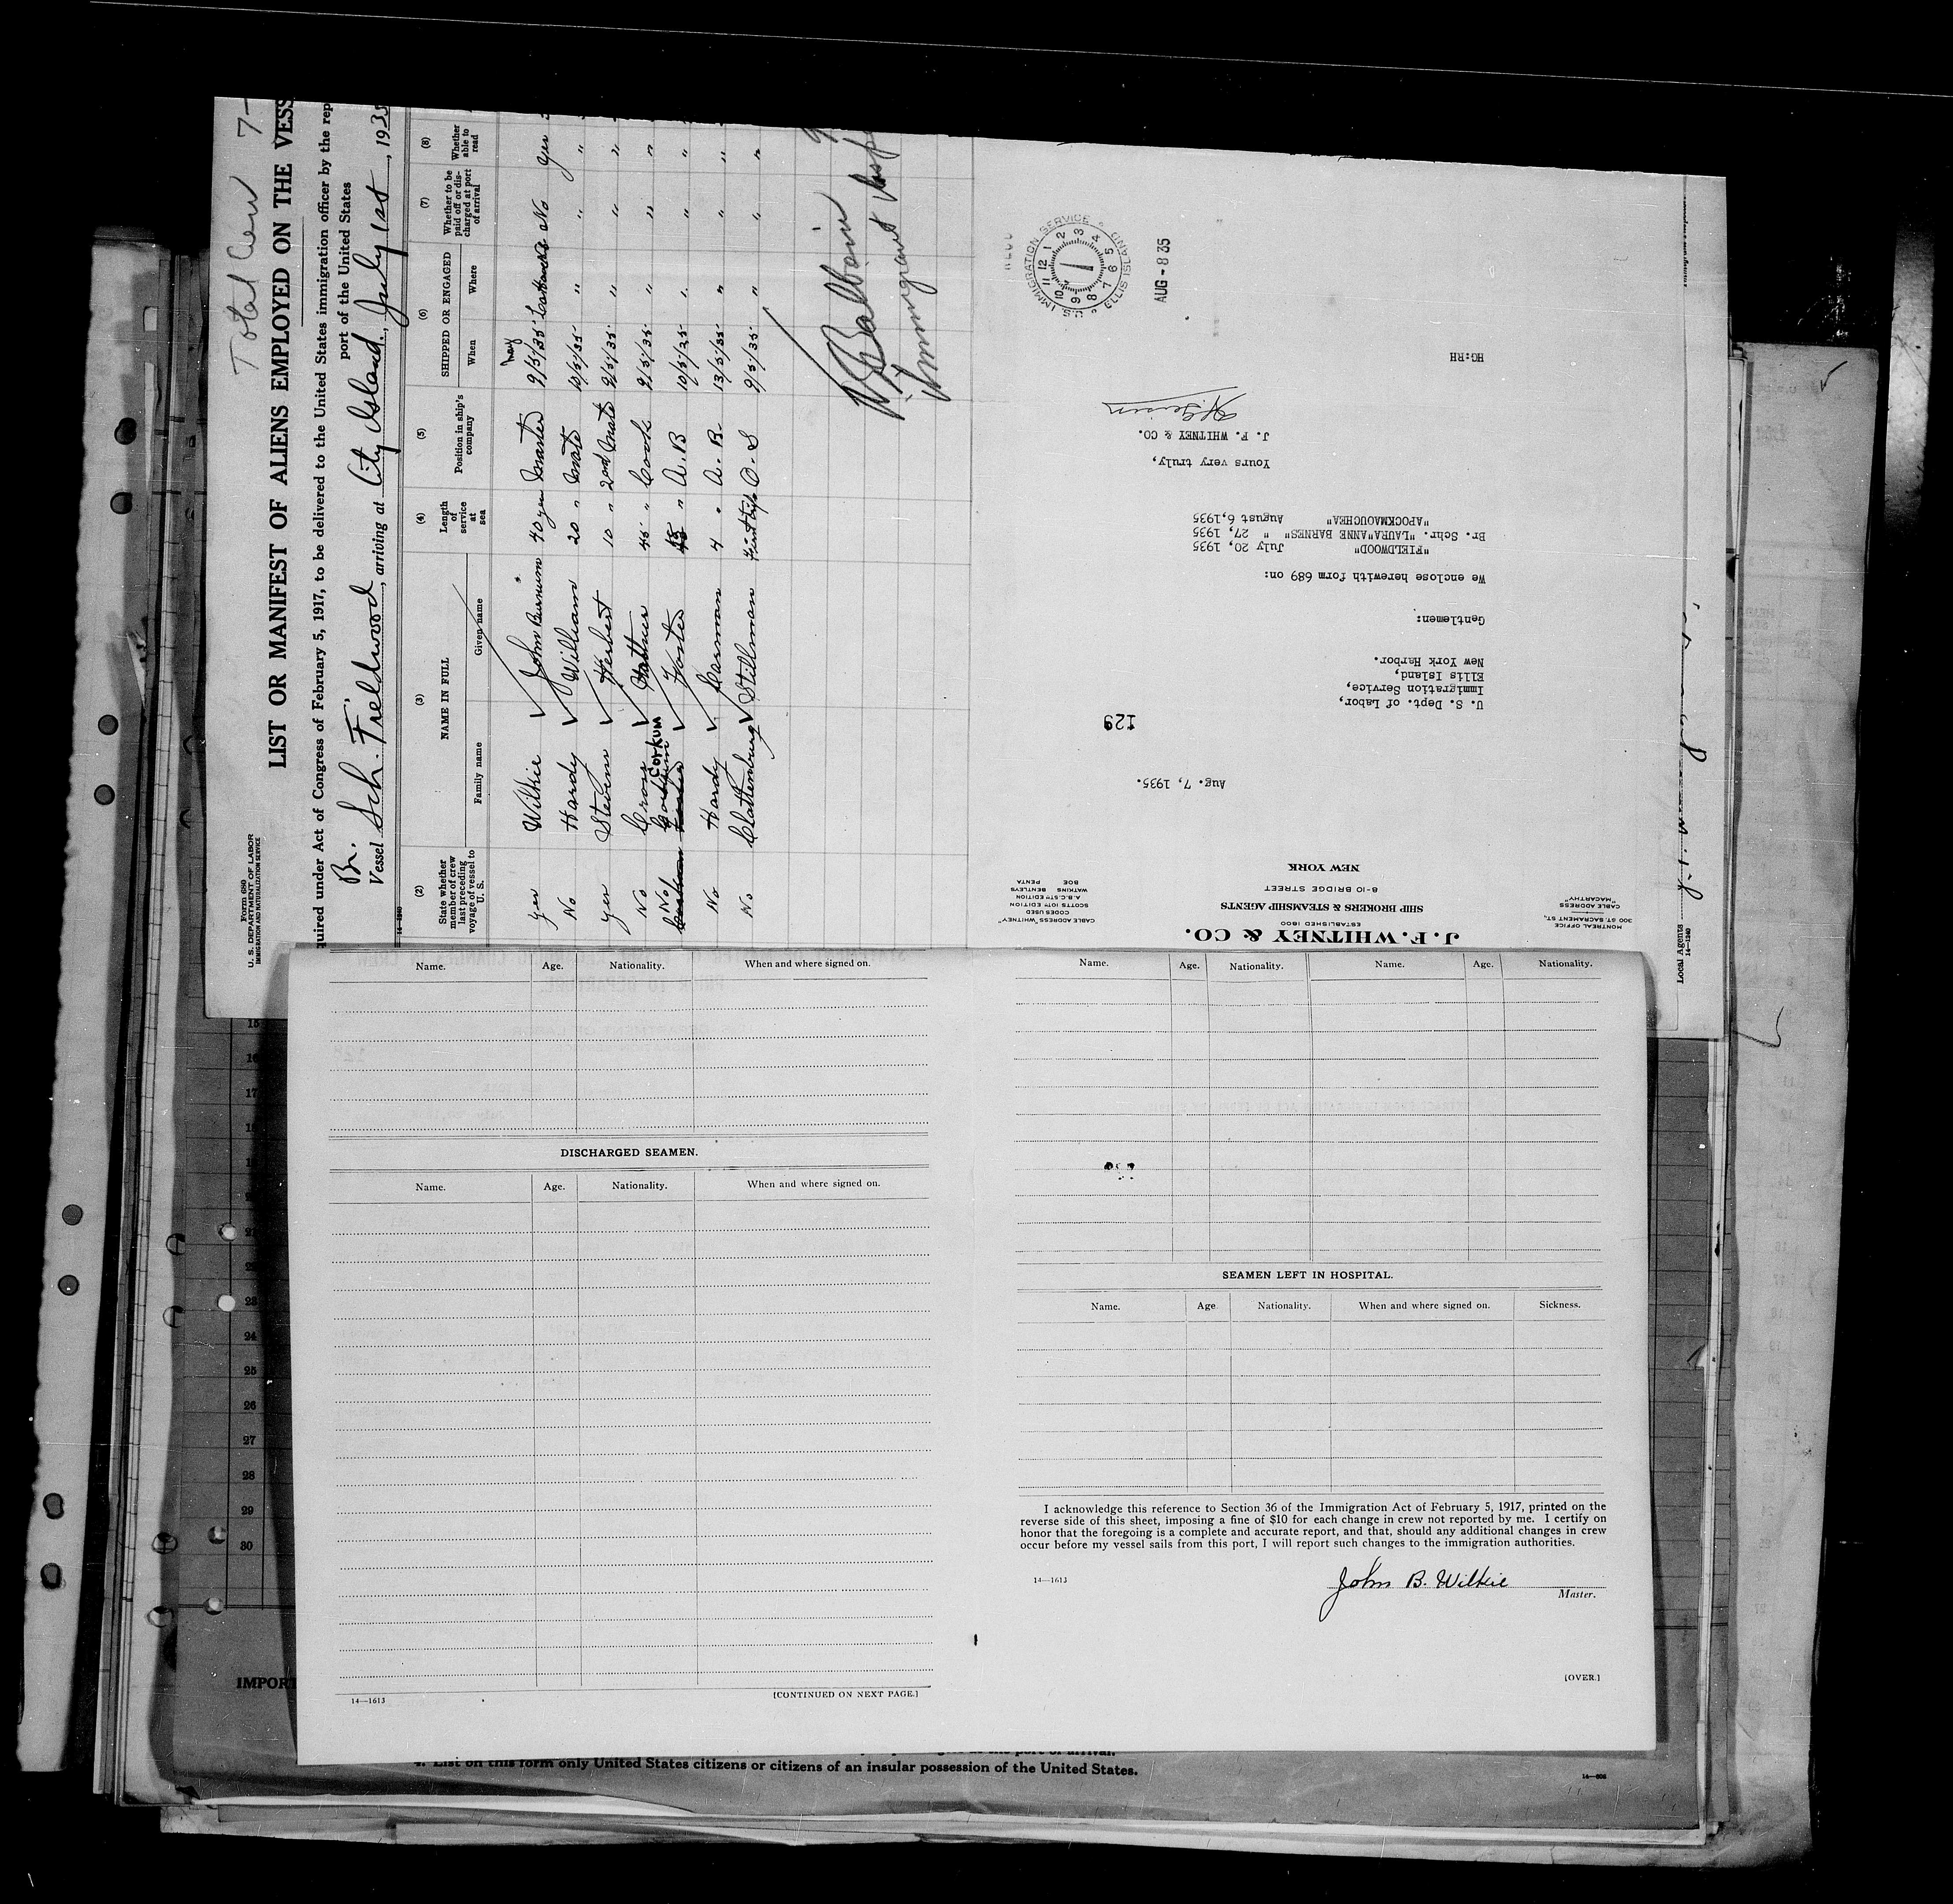 Total Crew 7-
Form 689
U. S. DEPARTMENT OF LABOR
IMMIGRATION AND NATURALIZATION SERVICE
LIST OR MANIFEST OF ALIENS EMPLOYED ON THE VESS
quired under Act of Congress of February 5, 1917, to be delivered to the United States immigration officer by the rep
port of the United States
Br.
Vessel Sch. "Fieldwood", arriving at City Island, July 1st, 1935
14-1240
(2) (3) (4) (5) (6) (7) (8)
State whether member of crew last preceding voyage of vessel to U. S.
NAME IN FULL
Family name Given name
Length of service at sea
Position in ship's company
SHIPPED OR ENGAGED
When Where
Whether to be paid off or discharged at port of arrival
Whether able to read
May
Yes Wilkie John Burnum 40 yrs Master 9/5/35 No Yes
No Hardy William 20 " Mate 10/5/35 " " "
Yes Stevens Herbert 10 " 2nd Mate 9/5/35 " " "
No Cross 45 " Cook 9/5/35 " " "
No Corkum Foster " A.B 10/5/35 " " "
No Hardy Carman 4 " A.B. 13/5/35 " " "
No Clattenburg Stillman First trip O.S 9/5/35 " " "
Balboin
Immigrant Insp
J. F. WHITNEY & CO.
ESTABLISHED 1800
SHIP BROKERS & STEAMSHIP AGENTS
8-10 BRIDGE STREET
NEW YORK
MONTREAL OFFICE
300 ST. SACRAMENT ST.
CABLE ADDRESS
"MACARTHY"
CABLE ADDRESS "WHITNEY"
CODES USED
SCOTTS 10TH EDITION
A.B.C. 5TH EDITION
WATKINS BENTLEYS
BOE PENTA
Aug. 7, 1935.
129
U. S. Dept. of Labor,
Immigration Service,
Ellis Island,
New York Harbor.
Gentlemen:
We enclose herewith form 689 on:
"FIELDWOOD" July 20, 1935
Br. Schr. "LAURA"ANNE BARNES" " 27, 1935
"APOCKMOUCHEA" August 6,1935
Yours very truly,
J. F. WHITNEY & CO.
HG:RH
U.S. IMMIGRATION SERVICE
ELLIS ISLAND
12 1 2 3 4 5 6 7 8 9 10 11
AUG -8 35
Local Agents
14-1240
Name. Age. Nationality. When and where signed on.
DISCHARGED SEAMEN.
Name. Age. Nationality. When and where signed on.
14—1613 [CONTINUED ON NEXT PAGE.]
Name. Age. Nationality. Name. Age. Nationality.
SEAMEN LEFT IN HOSPITAL.
Name. Age Nationality. When and where signed on. Sickness.
I acknowledge this reference to Section 36 of the Immigration Act of February 5, 1917, printed on the
reverse side of this sheet, imposing a fine of $10 for each change in crew not reported by me. I certify on
honor that the foregoing is a complete and accurate report, and that, should any additional changes in crew
occur before my vessel sails from this port, I will report such changes to the immigration authorities.
14—1613
John B. Wilkie
Master.
[OVER.]
15
16
17
24
25
26
27
28
29
30
IMPORT
4. List on this form only United States citizens or citizens of an insular possession of the United States.